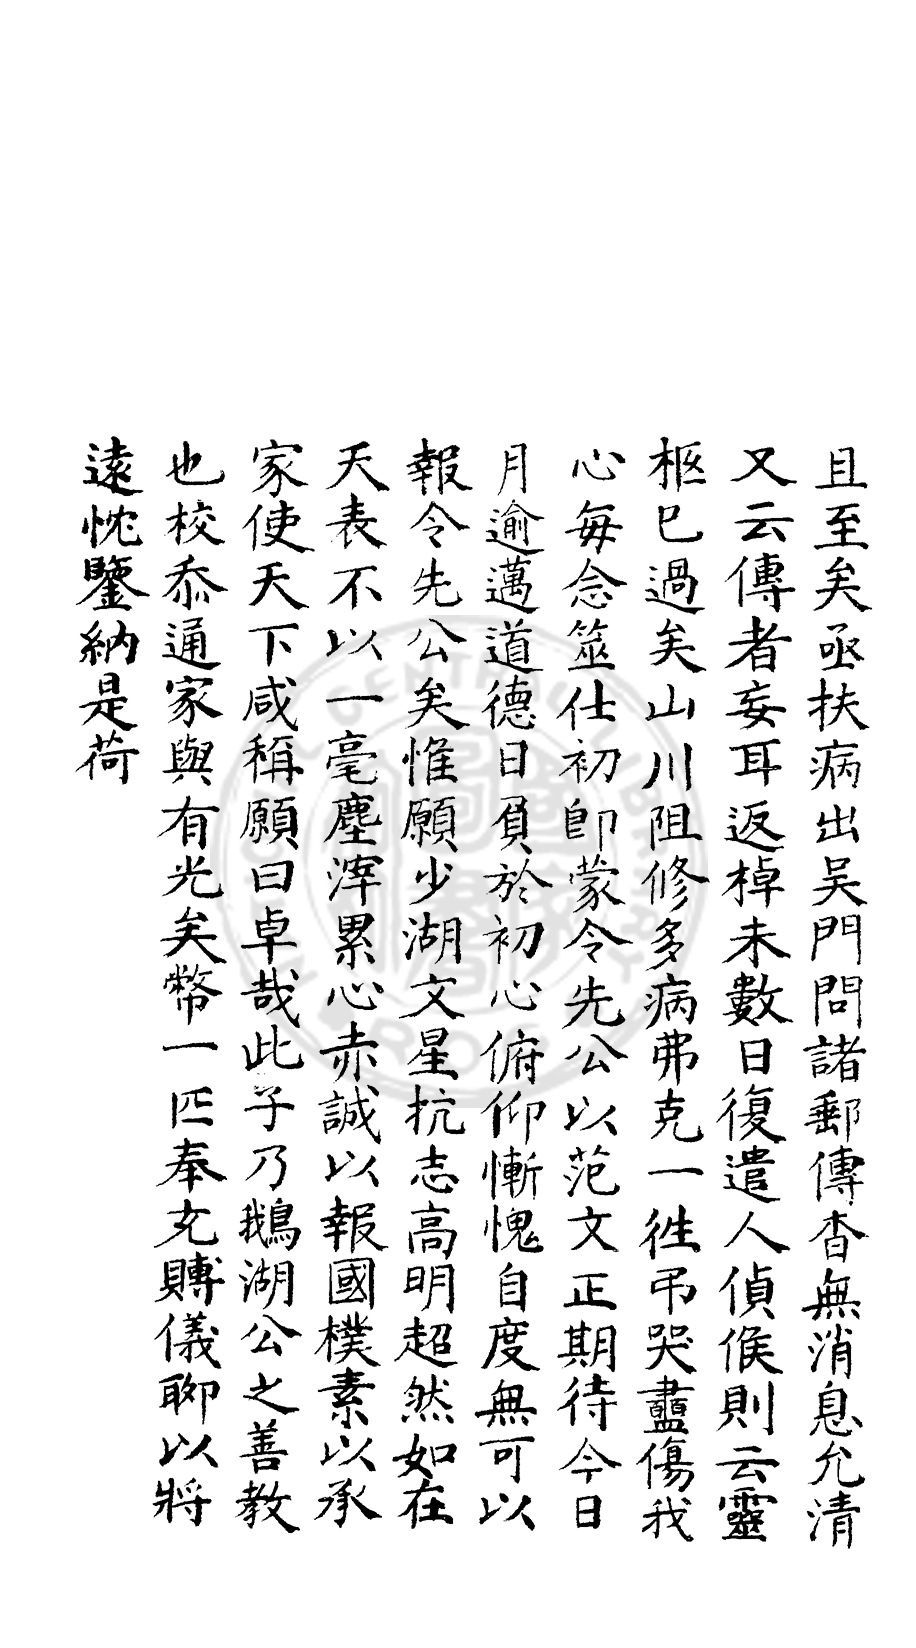 且至矣亟扶病出吴門問諸郵傳杳無消息允清
又云傳者妄耳返棹未數日復遣人偵候則云靈
柩已過矣山川阻修多病弗克一徃弔哭衋傷我
心每念筮仕初即蒙令先公以范文正期待今日
月逾邁道德日負於初心俯仰慚愧自度無可以
報令先公矣惟願少湖文星抗志高明超然如在
天表不以一毫塵滓累心赤誠以報國樸素以承
家使天下咸稱願曰卓哉此子乃鵝湖公之善教
也校忝通家與有光矣幣一疋奉充賻儀聊以將
遠忱鑒納是荷